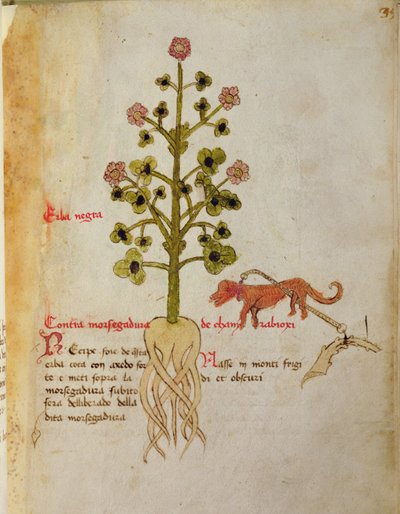 35
Erba negra
Contra morsegadura de cham rabioxi
Recipe foie de questa
erba cota con axedo for
te e meti sopra la
morsegadura subito
sera delliberado della
dita morsegadura
Nasse in monti frigi
di et obscuri